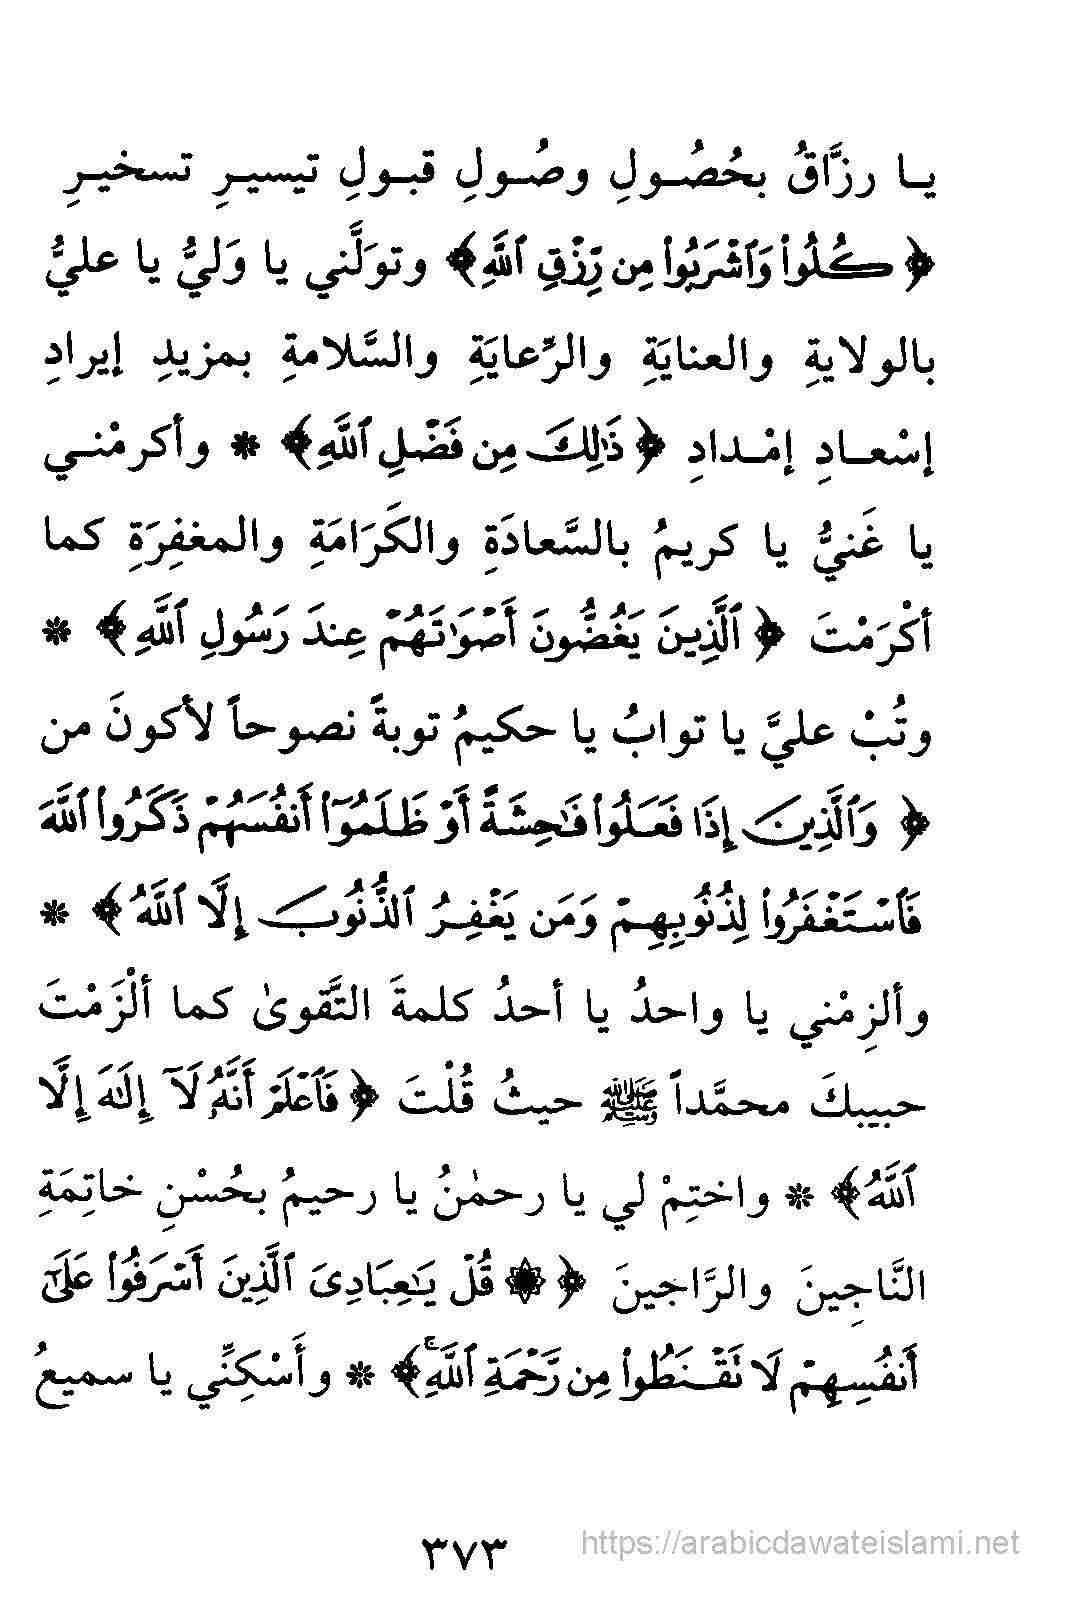 يـا رزَّاقُ بحُصُـولِ وصُـولِ قبـولِ تيسيـرِ تسخيـرِ
﴿ كُلُوا۟ وَٱشۡرَبُوا۟ مِن رِّزۡقِ ٱللَّهِ﴾ وتولَّني يا وَليُّ يا عليُّ
بالولايةِ والعنايَةِ والرِّعايَةِ والسَّلامةِ بمزيدِ إيرادِ
إسْعـادِ إمْـدادِ ﴿ ذَٰلِكَ مِن فَضۡلِ ٱللَّهِ﴾ * وأكرمْنـي
يا غَنيُّ يا كريمُ بالسَّعادَةِ والكَرَامَةِ والمغفِرَةِ كما
أكْرَمْتَ ﴿ ٱلَّذِينَ يَغُضُّونَ أَصۡوَٰتَهُمۡ عِندَ رَسُولِ ٱللَّهِ﴾ *
وتُبْ عليَّ يا توابُ يا حكيمُ توبةً نصوحاً لأكونَ من
﴿ وَٱلَّذِينَ إِذَا فَعَلُوا۟ فَٰحِشَةً أَوۡ ظَلَمُوٓا۟ أَنفُسَهُمۡ ذَكَرُوا۟ ٱللَّهَ
فَٱسۡتَغۡفَرُوا۟ لِذُنُوبِهِمۡ وَمَن يَغۡفِرُ ٱلذُّنُوبَ إِلَّا ٱللَّهُ﴾ *
وألزِمْني يا واحدُ يا أحدُ كلمةَ التَّقوىٰ كما ألْزَمْتَ
حبيبكَ محمَّداً ﷺ حيثُ قُلْتَ ﴿ فَٱعۡلَمۡ أَنَّهُۥ لَآ إِلَٰهَ إِلَّا
ٱللَّهُ﴾ * واختِمْ لي يا رحمٰنُ يا رحيمُ بحُسْنِ خاتِمَةِ
النَّاجِينَ والرَّاجينَ ﴿ ۞ قُلۡ يَٰعِبَادِىَ ٱلَّذِينَ أَسۡرَفُوا۟ عَلَىٰٓ
أَنفُسِهِمۡ لَا تَقۡنَطُوا۟ مِن رَّحۡمَةِ ٱللَّهِۚ﴾ * وأَسْكِنِّي يا سميعُ
٣٧٣
https://arabicdawateislami.net